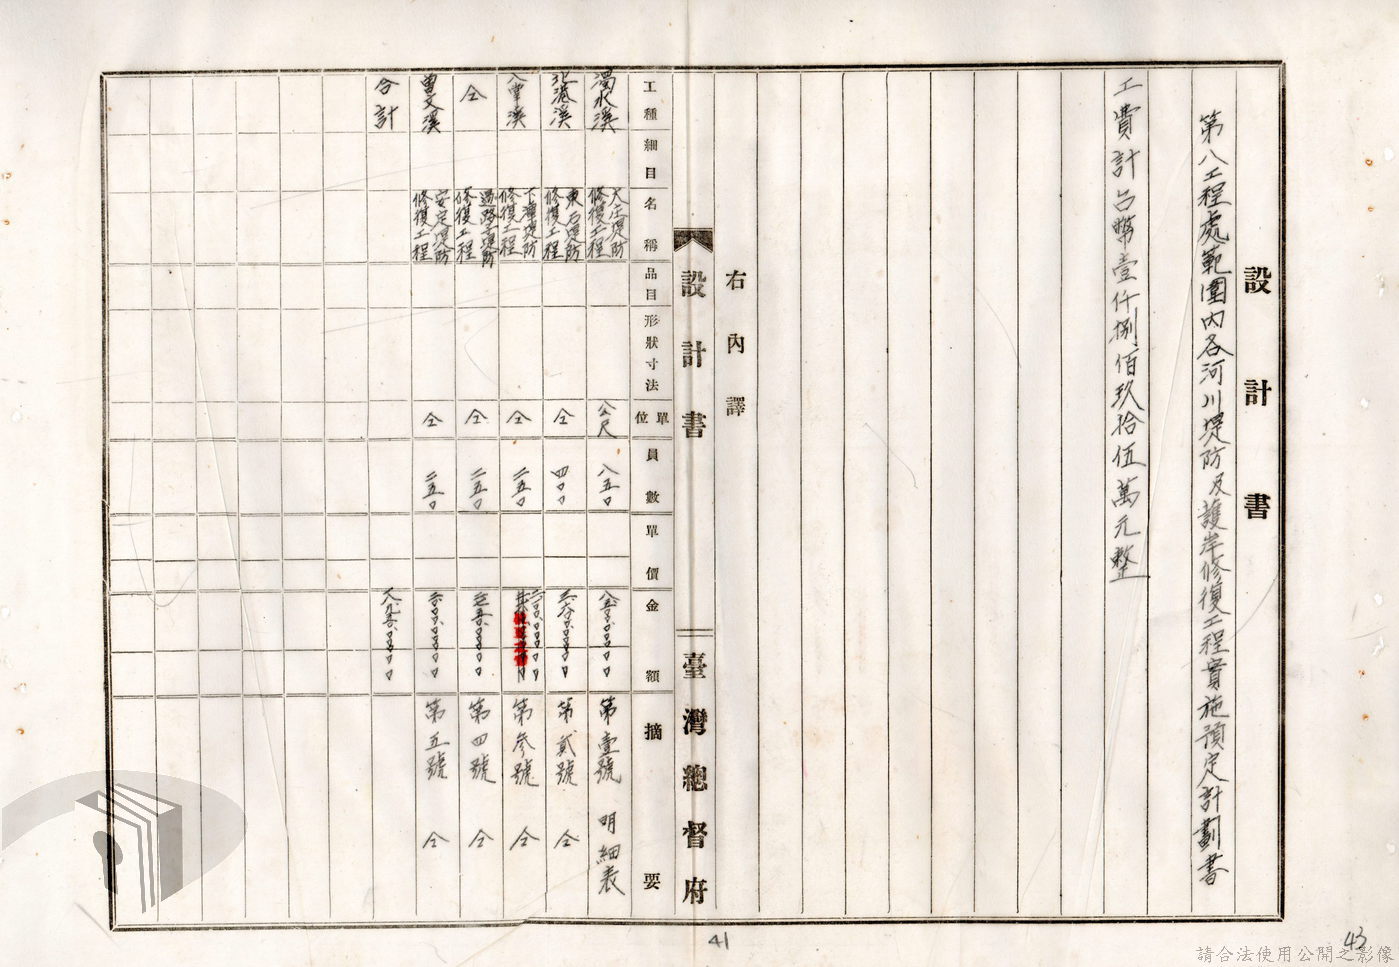 設計書
第八工程處範圍內各河川堤防及護岸修復工程實施預定計劃書
工費計台幣壹仟捌佰玖拾伍萬元整
右內譯
設計書
臺灣總督府
工種 細目 名稱 品目 形狀寸法 單位 員數 單價 金額 摘要
濁水溪 大庄堤防修復工程 公尺 八五〇 第壹號 明細表
北港溪 東石堤防修復工程 仝 四〇〇 第貳號 仝
八掌溪 下潭堤防修復工程 仝 二五〇 第參號 仝
仝 過路子堤防修復工程 仝 二五〇 第四號 仝
曾文溪 安定堤防修復工程 仝 二五〇 第五號 仝
合計
41
43
請合法使用公開之影像